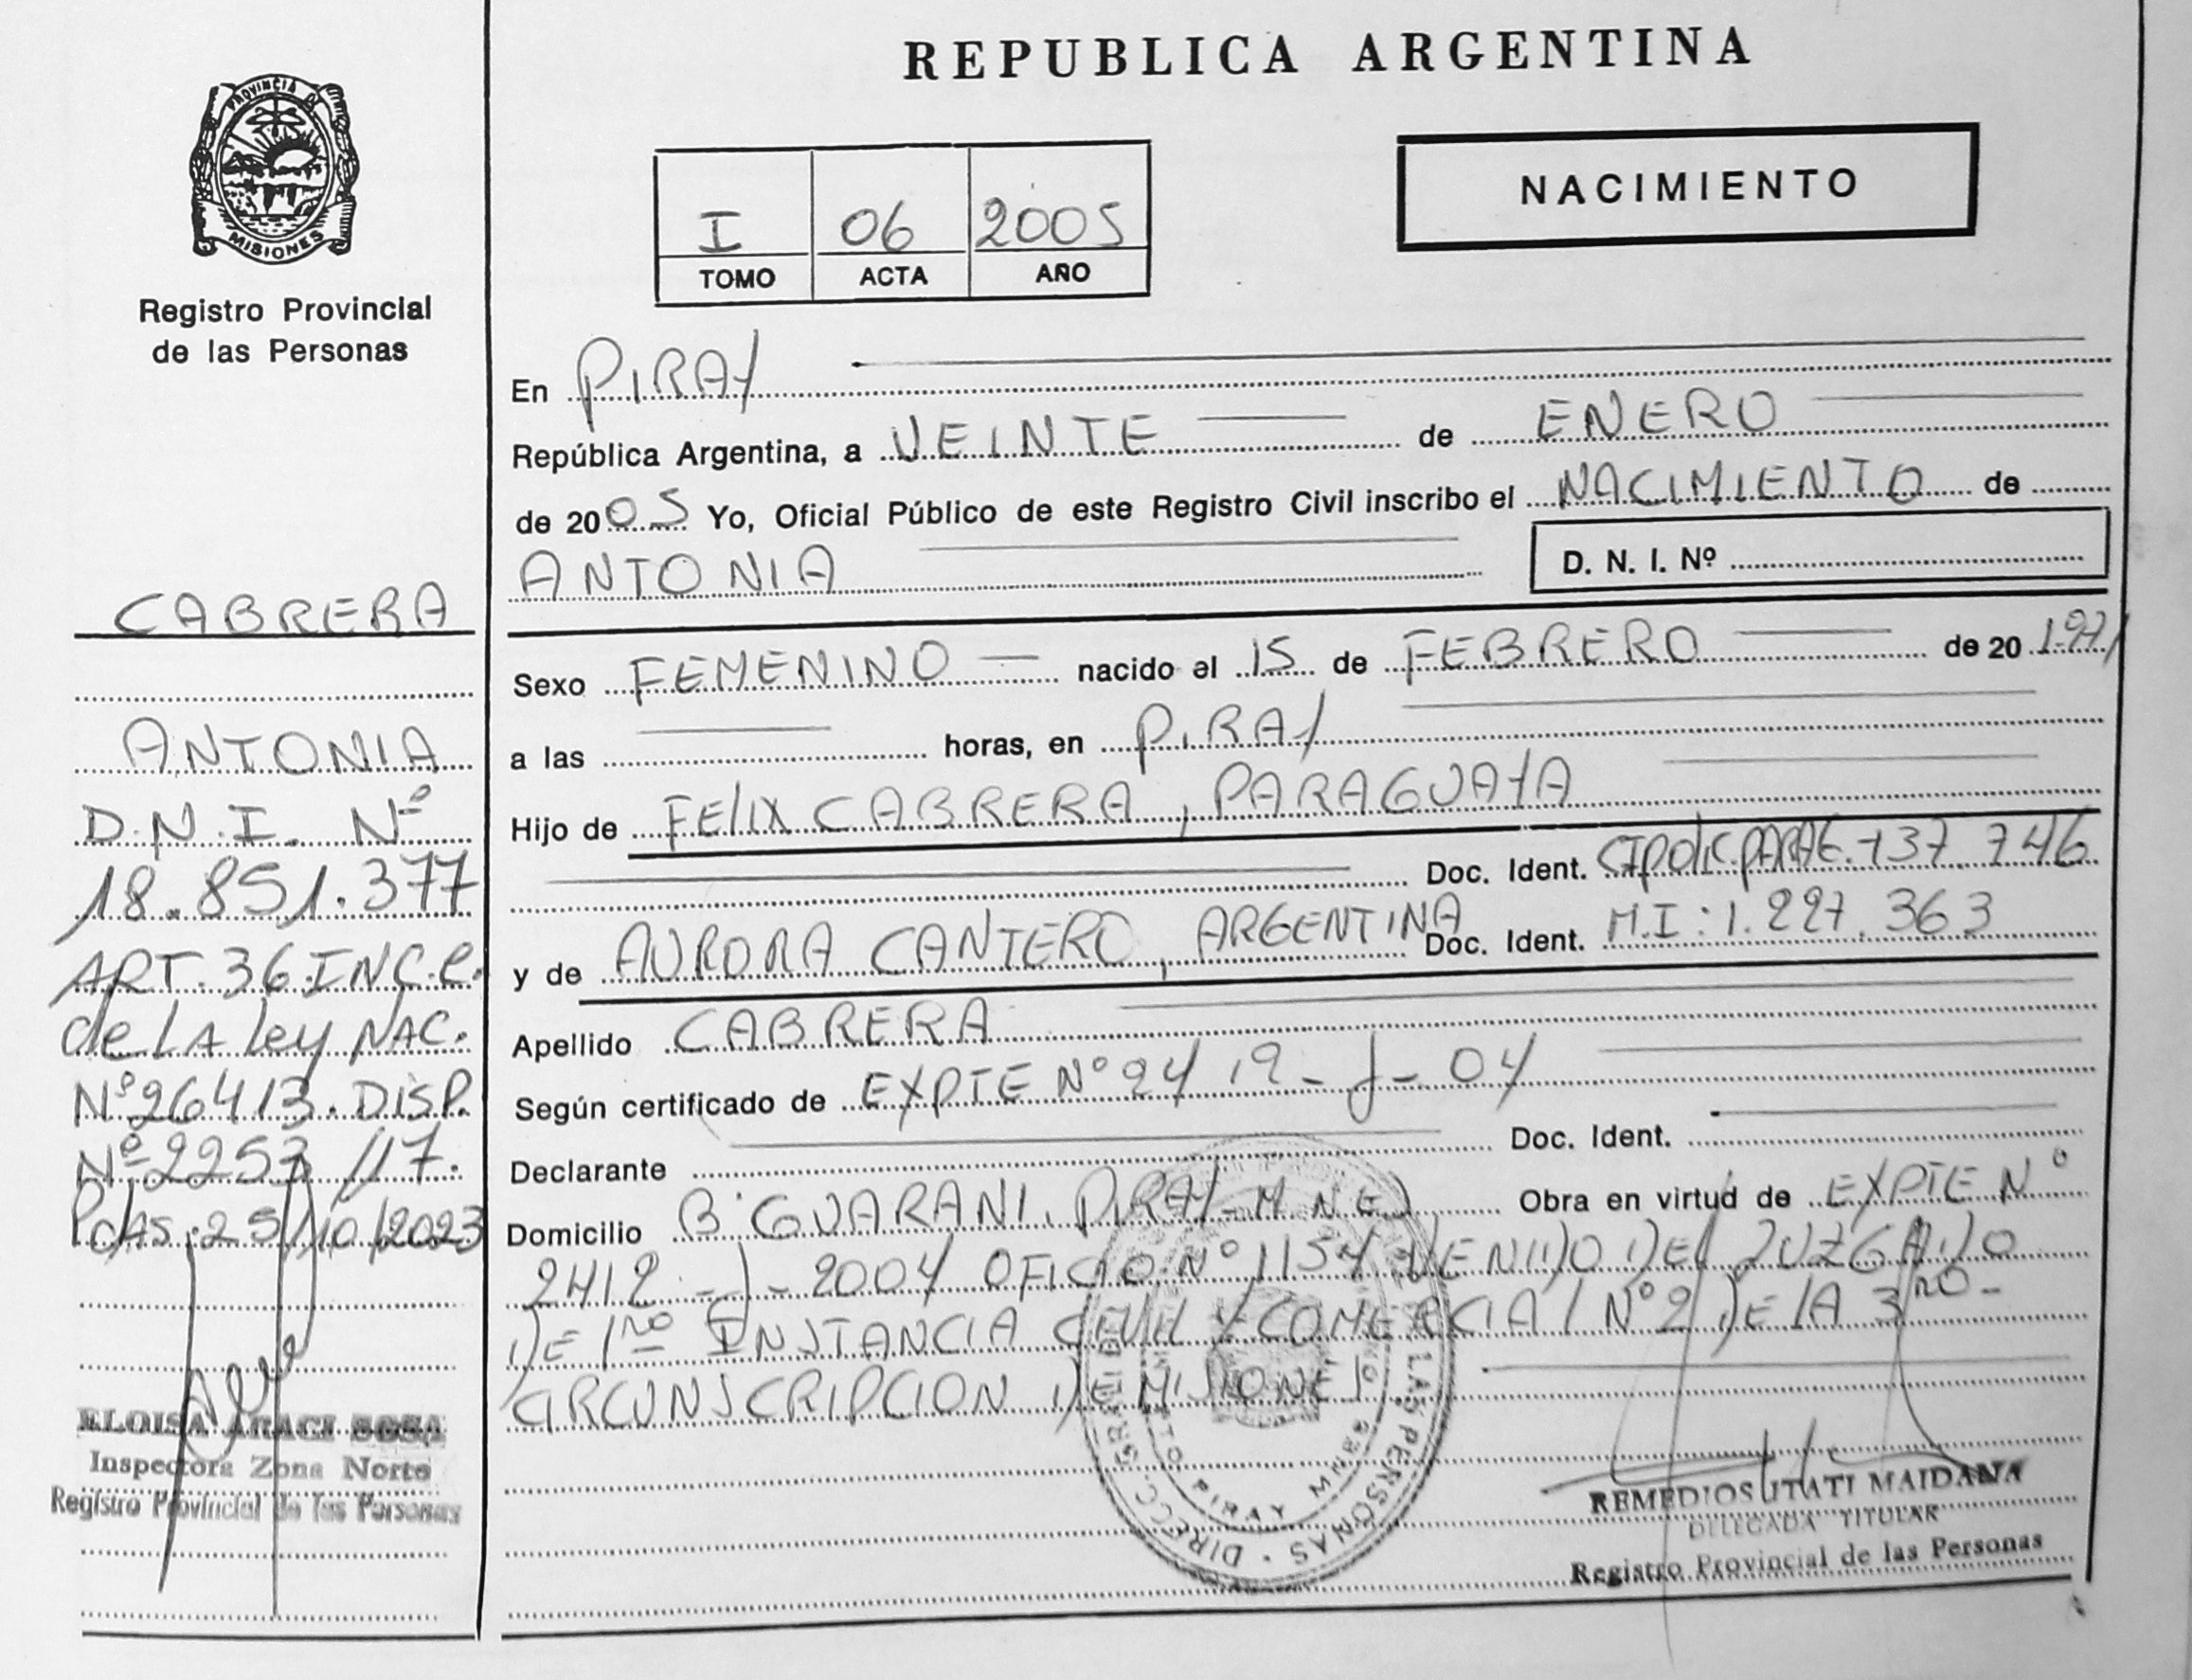 REPUBLICA ARGENTINA
PROVINCIA DE
MISIONES
Registro Provincial
de las Personas
I 06 2005
TOMO ACTA AÑO
NACIMIENTO
En PIRAY
República Argentina, a VEINTE de ENERO
de 2005 Yo, Oficial Público de este Registro Civil inscribo el NACIMIENTO de
ANTONIA
D. N. I. Nº
Sexo FEMENINO nacido el 15 de FEBRERO de 20 1.971
a las horas, en PIRAY
Hijo de FELIX CABRERA, PARAGUAYA
Doc. Ident. 137.746
y de AURORA CANTERO, ARGENTINA Doc. Ident. M.I: 1.227.363
Apellido CABRERA
Según certificado de EXPTE Nº 2412-J-04
Declarante Doc. Ident.
Domicilio Bº GUARANI. PIRAY-MNES Obra en virtud de EXPTE Nº
2412-J-2004 OFICIO Nº 1154 VENIDO DEL JUZGADO
DE 1RO INSTANCIA CIVIL Y COMERCIAL Nº 2 DE LA 3RO-
CIRCUNSCRIPCION DE MISIONES
CABRERA
ANTONIA
D.N.I. Nº
18.851.377
ART.36.INC.C.
de LA ley NAC.
Nº 26413. DISP.
Nº 2253/17.
PDAS:25/10/2023
ELOISA ARACI SOSA
Inspectora Zona Norte
Registro Provincial de las Personas
DIRECC. GRAL DE LAS PERSONAS
PIRAY MNES
REMEDIOS ITATI MAIDANA
DELEGADA TITULAR
Registro Provincial de las Personas